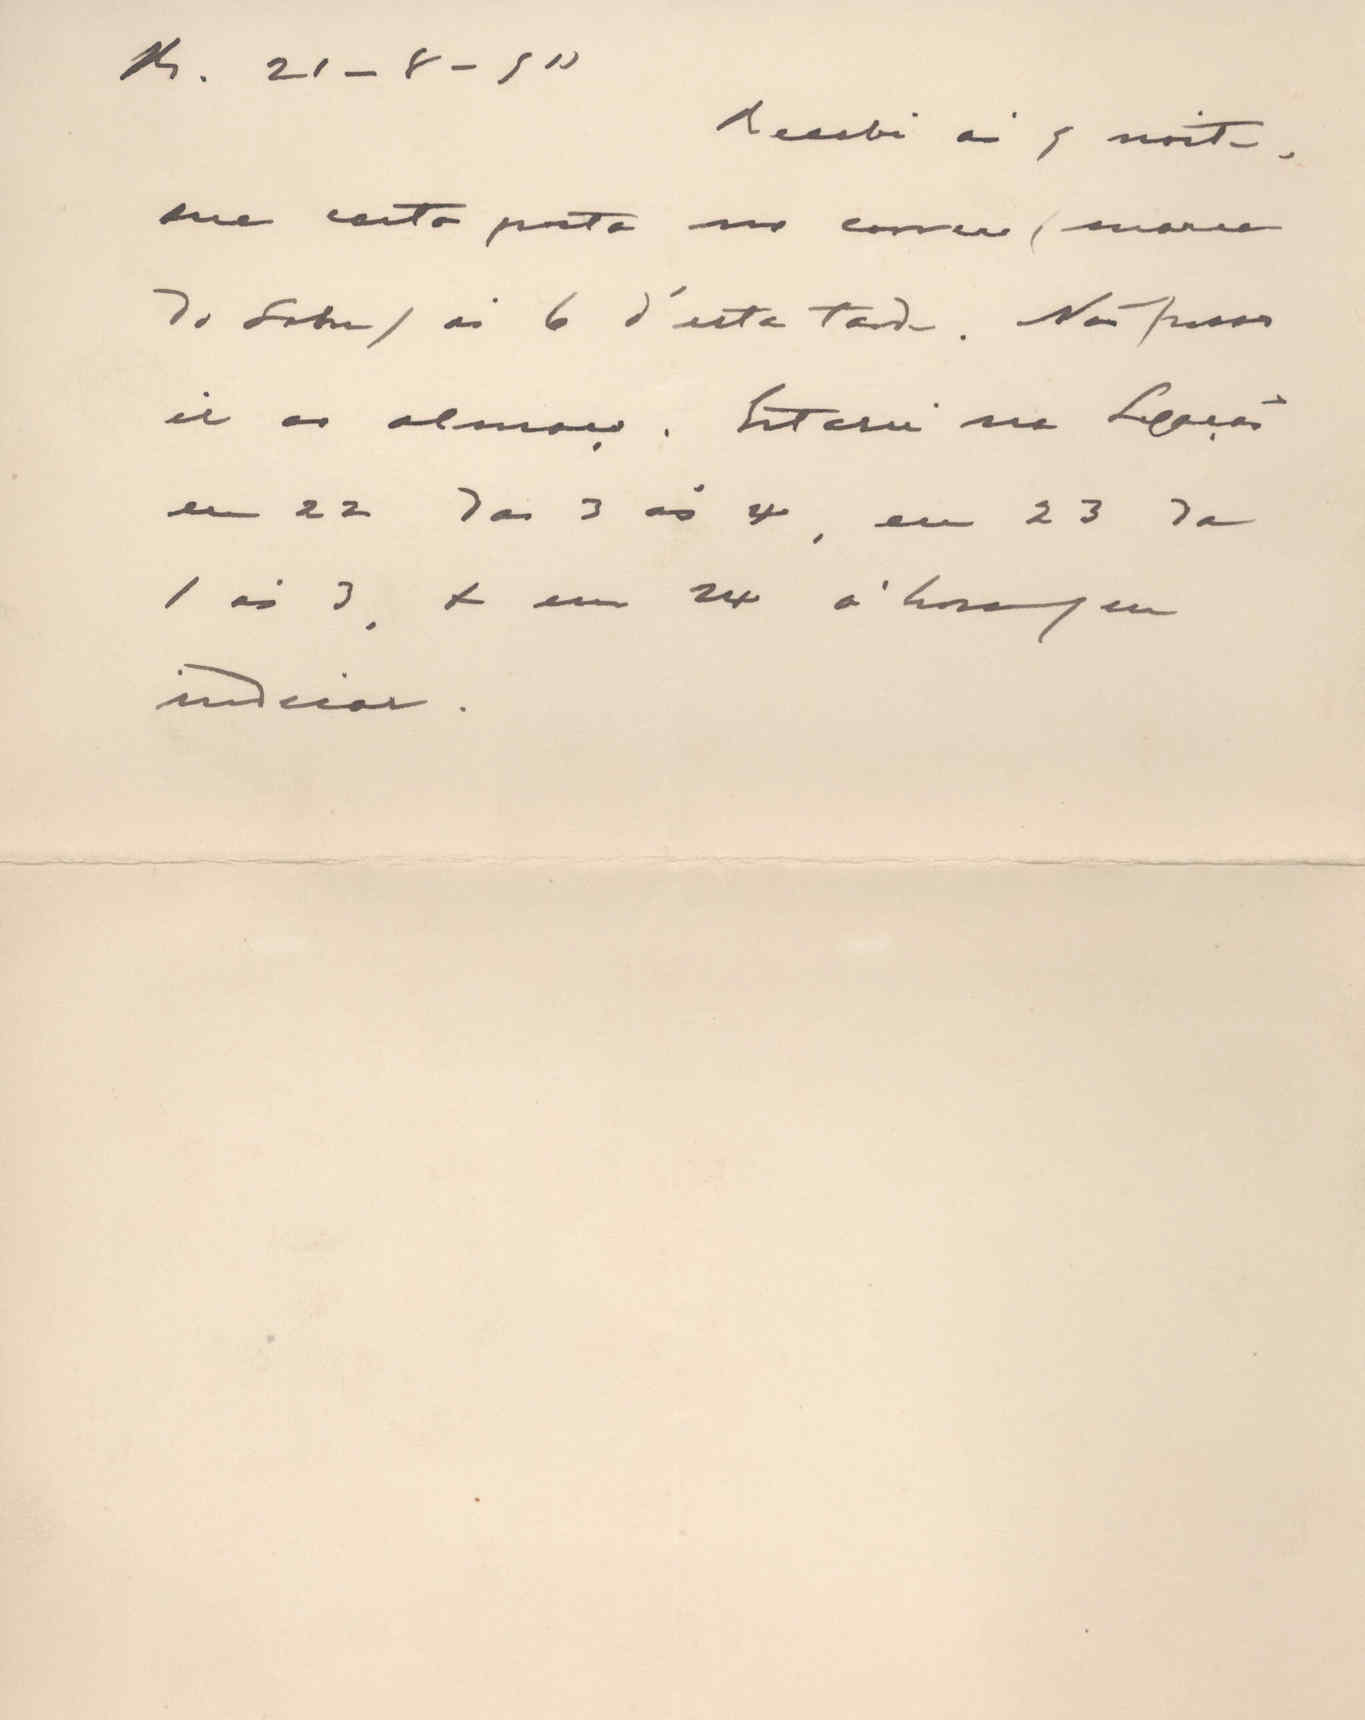 21-8-90
Recebi ás 9 noite,
sua carta posta no correio (marca
do sobre) ás 6 d'esta tarde. Não posso
ir ao almoço. Estarei na Legação
em 22 das 3 ás 4, em 23 da
1 ás 3, e em 24 á hora q em
indicar.